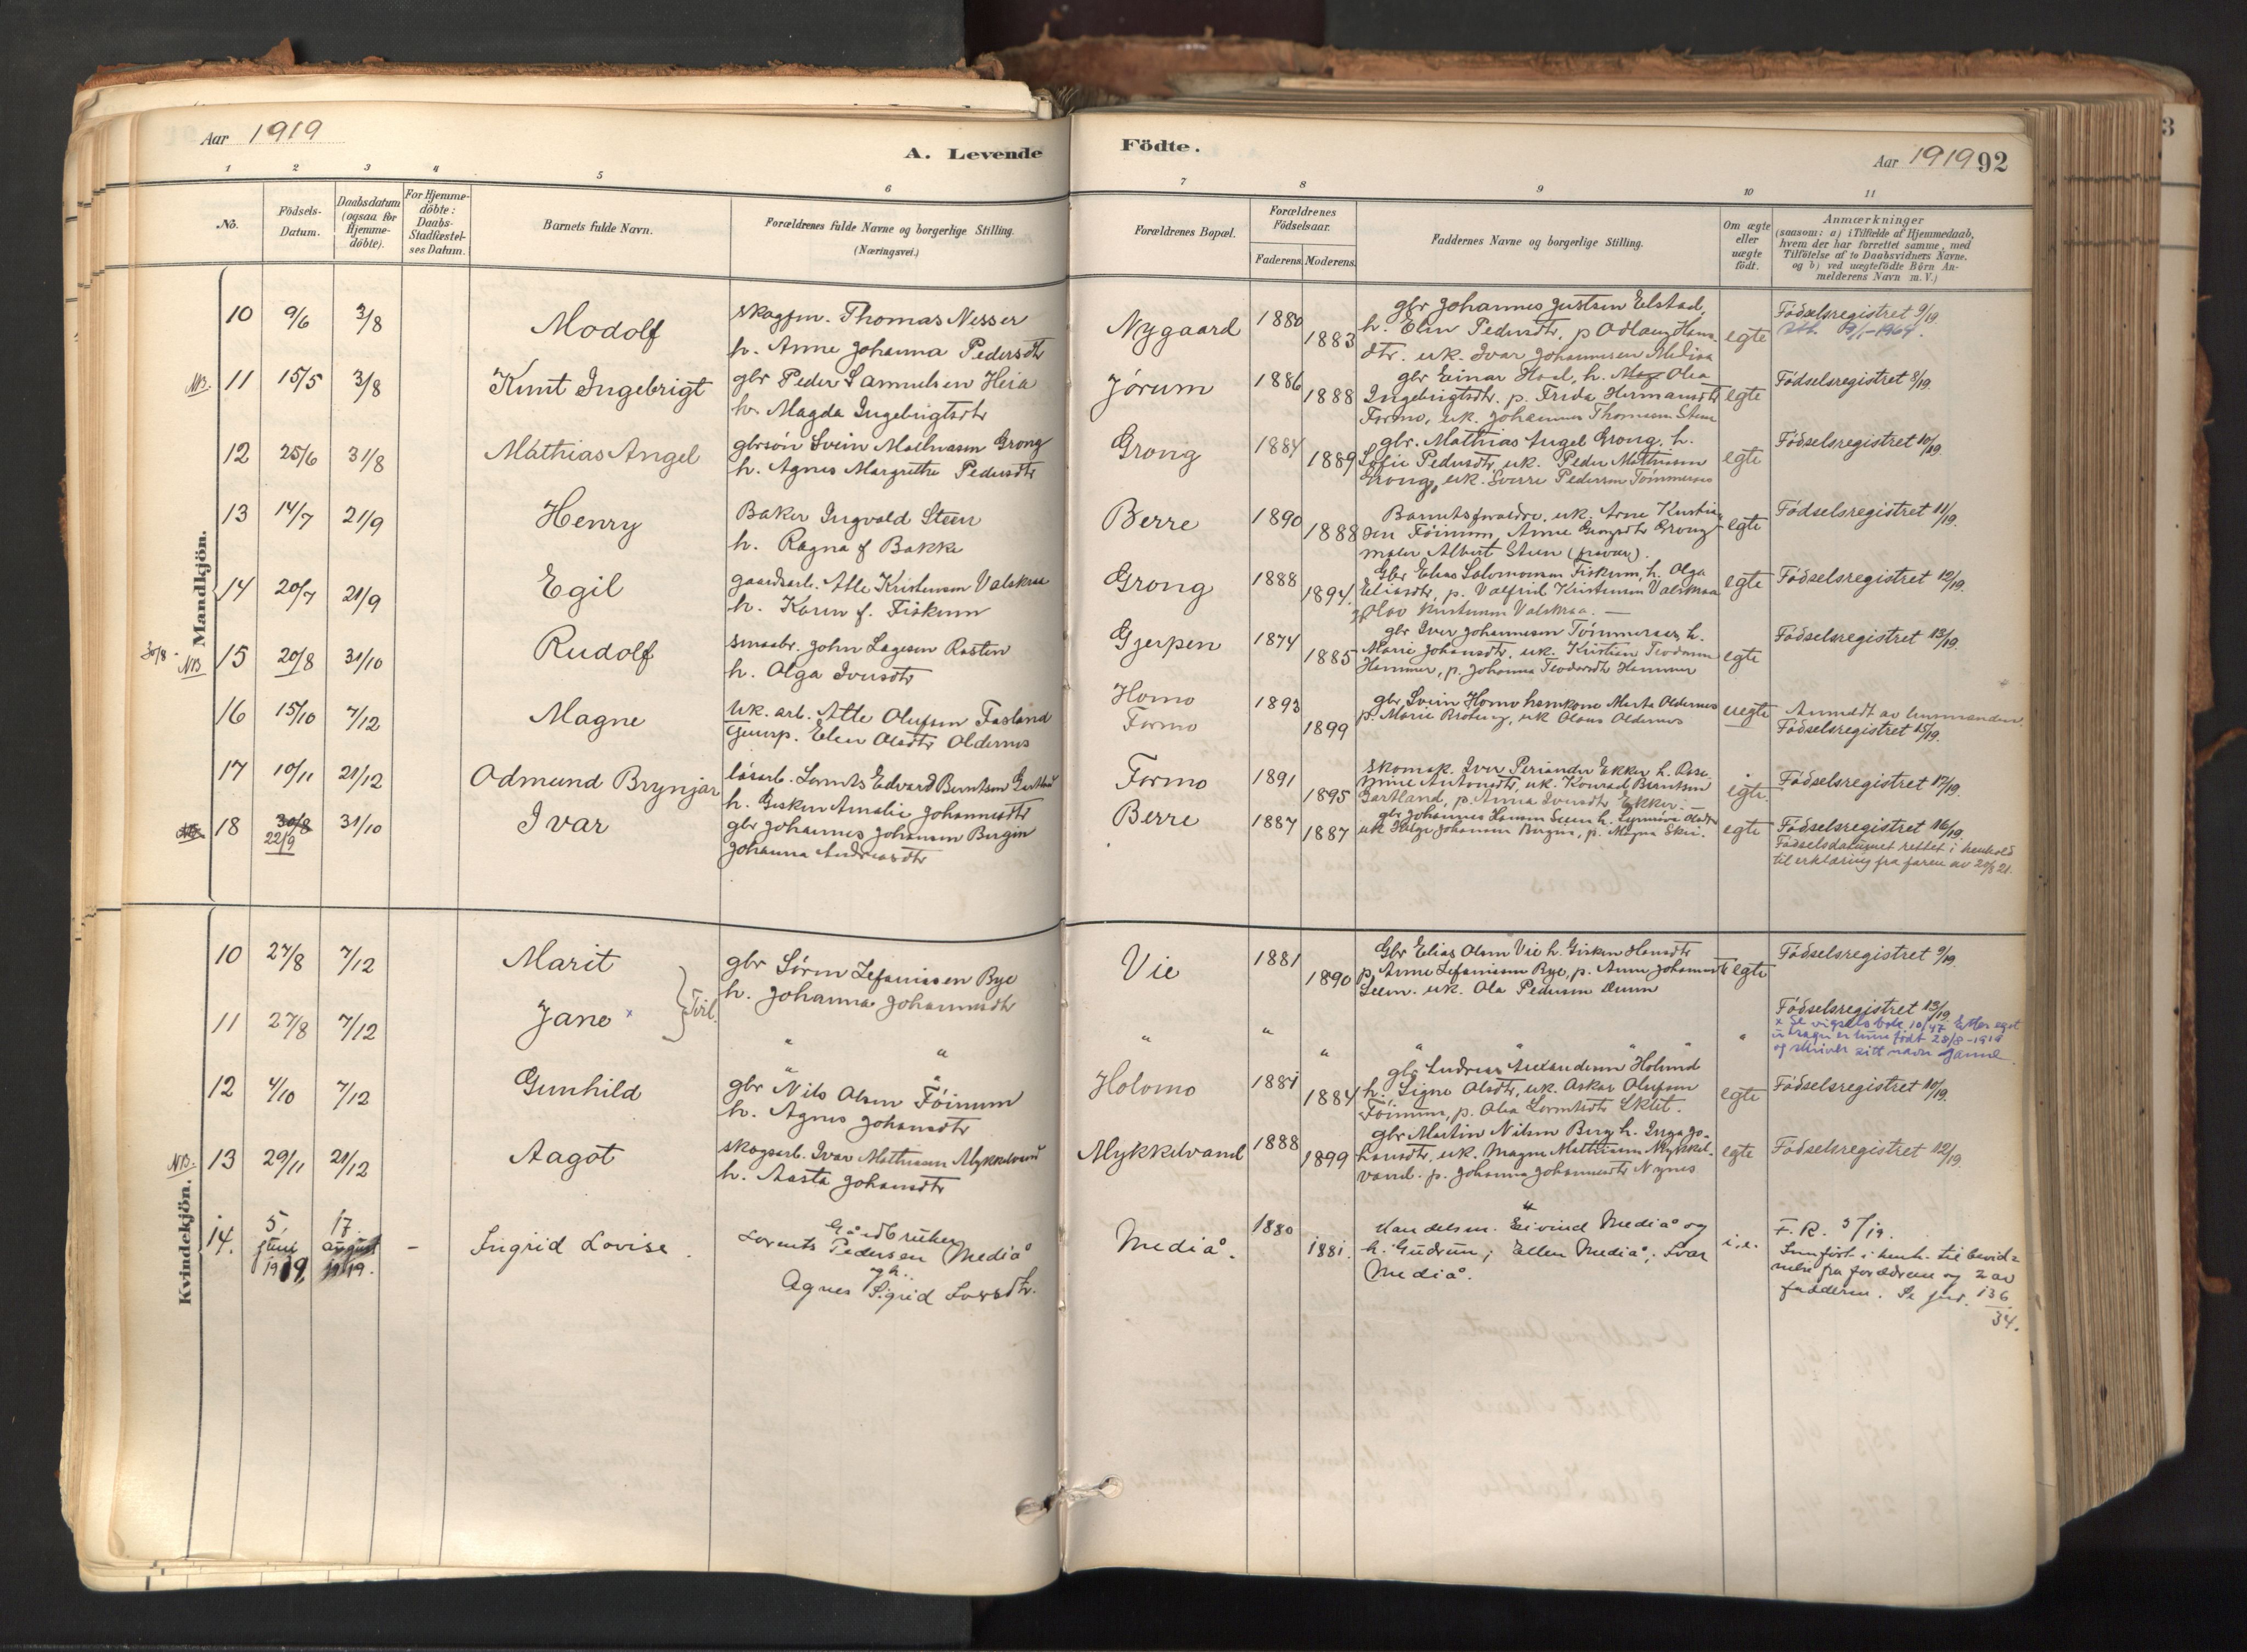 Aar 1919
A. Levende
Födte.
Aar 1919 92
3
1 2 3 4 5 6 7 8 9 10 11
No.
Födsels-
Datum.
Daabsdatum
(ogsaa for
Hjemme-
döbte).
For Hjemme-
döbte:
Daabs-
Stadfæstel-
ses Datum.
Barnets fulde Navn.
Forældrenes fulde Navne og borgerlige Stilling.
(Næringsvei.)
Forældrenes Bopæl.
Forældrenes
Födselsaar.
Faderens. Moderens.
Faddernes Navne og borgerlige Stilling.
Om ægte
eller
uægte
födt.
Anmærkninger
(saasom: a) i Tilfælde af Hjemmedaab,
hvem der har forrettet samme, med
Tilföielse af to Daabsvidners Navne.
og b) ved uægtefödte Börn An-
melderens Navn m. V.)
Mandkjön.
10 9/6 3/8 Modolf
skogfm. Thomas Nesser
h. Anne Johanna Pedersdtr
Nygaard 1880 1883
gbr Johannes Justsen Elstad,
h. Elen Pedersdtr, p Odlaug Hans
dtr. uk. Ivar Johannesen Mediaa
egte
Födselsregistret 9/19.
NB. 11 15/5 3/8 Knut Ingebrigt
gbr Peder Samuelsen Heia
h. Magda Ingebrigtsdtr
Jörum 1886 1888
gbr Einar Hoel, h. Olea
Ingebrigtsdtr. p. Frida Hermansdtr
Formo, uk. Johannes Thomsen Steen
egte
Födselsregistret 8/19.
12 25/6 31/8 Mathias Angel
gbrsön Svein Mathiasen Grong
h. Agnes Margrethe Pedersdtr
Grong 1884 1889
gbr. Mathias Angel Grong, h.
Sofie Pedersdtr, uk. Peder Mathiasen
Grong, uk. Sverre Pedersen Tömmeraas
egte
Födselsregistret 10/19.
13 14/7 21/9 Henry
Baker Ingvald Steen
h. Ragna f Bakke
Berre 1890 1888
Barnets foreldre, uk. Arne Kristian
sen Föinum, Anne Grong
maler Albert Steen (fravær).
egte
Födselsregistret 11/19.
14 20/7 21/9 Egil
gaardsarb. Atle Kristensen Valskraa
h. Karen f. Fiskum
Grong 1888 1894.
Gbr Elias Salomonsen Fiskum, h. Olga
Eliasdtr, p. Valfrid Kristensen Valskraa
Olav Kristensen Valskraa. —
egte
Födselsregistret 12/19.
30/8 - NB 15 20/8 31/10 Rudolf
smaabr. John Lagesen Rosten
h. Olga Iversdtr
Gjerpen 1874 1885
gbr Iver Johannesen Tömmeraas, h.
Marie Johansdtr, uk. Kristian Teodorsen
Hammer, p. Johanna Teodorsdtr Hammer
egte
Födselsregistret 13/19.
16 15/10 7/12 Magne
uk. arb. Atle Olufsen Fasland
Gunsp. Elen Olsdtr Oldernes
Homo
Formo
1893 1899
gbr Svein Homo hamkone Marta Oldernes
p. Marie Broberg, uk Olaus Oldernes
uegte
Anmeldt av
Födselsregistret 15/19.
17 10/11 21/12 Odmund Brynjar
lösarb. Lornts Edvard Berntsen Gartland
h. Gesken Amalie Johannesdtr
Formo 1891 1895
skomak. Iver Periander Ekker h. Rose
Antonsdtr, uk. Konrad Berntsen
Gartland, p. Anna Iversdtr Ekker. —
egte.
Födselsregistret 17/19.
18 30/8 22/9 31/10 Ivar
gbr Johannes Johansen Bergin
Johanna Andreasdtr
Berre 1887 1887
gbr Johannes Hansen Seem h. Synnöve Olsdtr
uk Helge Johansen Bergin, p. Magna Skei.
egte
Födselsregistret 16/19.
Födselsdatumet rettet i henhold
til erklæring fra faren av 20/8 21.
Kvindekjön.
10 27/8 7/12 Marit
gbr Sören Zefaniassen Bye
h. Johanna Johannesdtr
Tvil.
Vie 1881 1890
Gbr Elias Olsen Vie h. Gesken Hansdtr
p. Anne Zefaniasen Bye, p. Anna Johannesdtr
Seem. uk. Ola Pedersen Duun
egte
Födselsregistret 9/19.
11 27/8 7/12 Jane x
" " " " " " " "
Födselsregistret 13/19.
x Se vigselsbok 10/47. Etter eget
utsagn er hun født 28/8-1919
og skriver sitt navn Janne.
12 4/10 7/12 Gunhild
gbr Nils Olsen Föinum
h. Agnes Johansdtr
Holomo 1881 1884
gbr Andreas Alexandersen Holmo
h. Signe Olsdtr, uk. Oskar Olufsen
Föinum, p. Olea Lorntsdtr Sklet.
egte
Födselsregistret 10/19.
NB. 13 29/11 21/12 Aagot
skogsarb. Ivar Mathiesen Mykkelvand
h. Aasta Johansdtr
Mykkelvand 1888 1899
gbr Martin Nilsen Berg h. Inga Jo-
hansdtr, uk. Magne Mathiesen Mykkel-
vand. p. Johanna Johannesdtr Nynes
egte
Födselsregistret 12/19
14. 5. juni 1919. 17. august 1919. – Ingrid Lovise.
Gårdbruker
Lorents Pedersen Mediå
og h.
Agnes Sigrid Larsdtr.
Mediå. 1880 1881.
Handelsm. Eivind Mediå og
h. Gudrun; Ellen Mediå; Ivar
Mediå.
F. R. 5/19.
Innfört i henh. til bevid=
nelse fra foreldrene og 2 av
fadderne. Se jnr. 136
34.